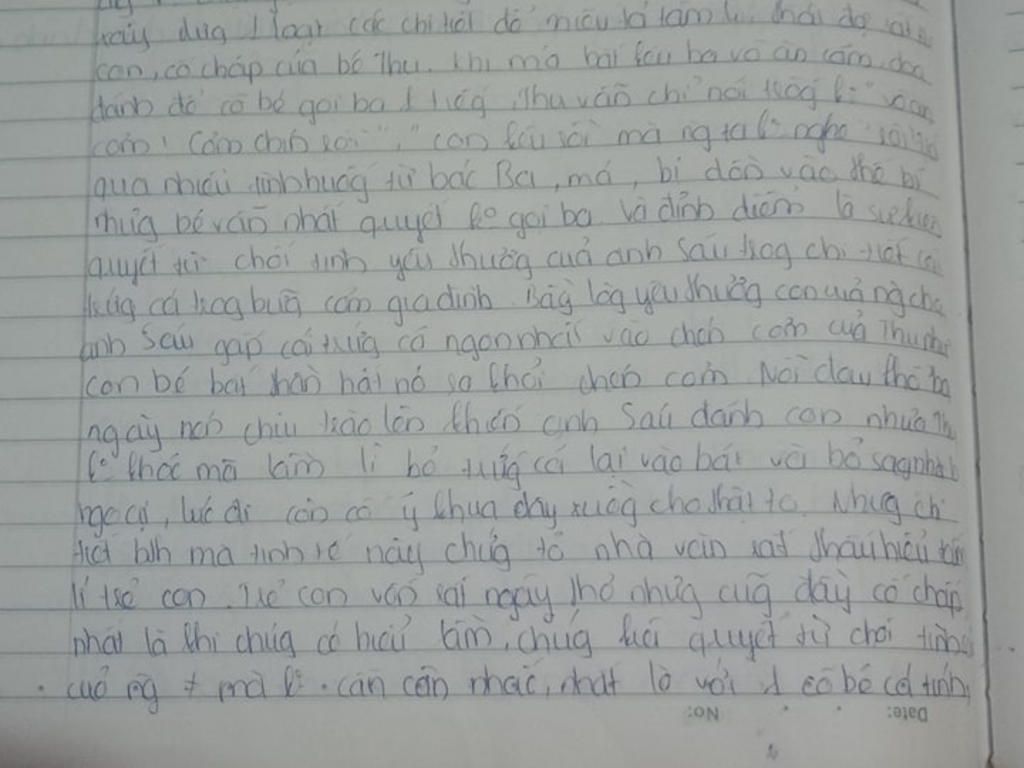 xây dựg 1 loạt các chi tiết để miêu tả tâm lí, thái độ
con, cố chấp của bé Thu. Khi má bai kêu ba vô ăn cơm, doạ
đánh để cô bé gọi ba 1 tiếg, Thu vẫn chỉ nói trổg k° "vô ăn
cơm! Cơm chín rồi", "con kêu rồi mà ng ta k° nghe"
qua nhiều tình huốg từ bác Ba, má, bị dồn vào thế bí
nhưg bé vẫn nhất quyết k° gọi ba. Và đỉnh điểm là sự kiên
quyết từ chối tình yêu thươg của anh Sáu trog chi tiết cái
trứg cá trog bữa cơm gia đình. Bằg lòg yêu thươg con của ng cha
anh Sáu gắp cái trứg cá ngon nhất vào chén cơm của Thu nhg
con bé bất thần hất nó ra khỏi chén cơm. Nỗi đau khổ ba
ngày nén chịu trào lên khiến anh Sáu đánh con nhưg Thu
k° khóc mà lầm lì bỏ trứg cá lại vào bát và bỏ sag nhà b
ngoại, lúc đi còn cố ý khua dây xuồg cho thật to. Nhưg chi
tiết bình mà tinh tế này chứg tỏ nhà văn rất thấu hiểu tâm
lí trẻ con. Trẻ con vốn rất ngây thơ nhưg cũg đầy cố chấp
nhất là khi chúg có hiểu lầm, chúg kiên quyết từ chối tình
của ng ≠ mà k° cần cân nhắc, nhất là với 1 cô bé cá tính,
No:
Date: